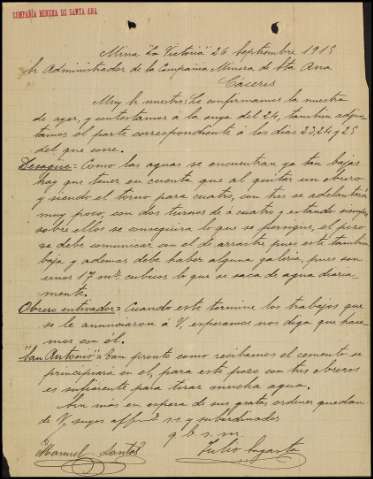 COMPAÑIA MINERA DE SANTA ANA
Mina "La Victoria" 26 Septiembre 1915
Sr Administrador de la Compañia Minera de Sta Ana
Cáceres
Muy Sr nuestro: Le confirmamos la nuestra
de ayer, y contestamos á la suya del 24, tambien adjun-
tamos el parte correspondiente á los dias 23, 24 y 25
del que corre.
Desagüe = Como las aguas se encuentran ya tan bajas
hay que tener en cuenta que al quitar un obrero
y siendo el torno para cuatro, con tres se adelantará
muy poco, con dos turnos de á cuatro y estando siempre
sobre ellos se conseguira lo que se porsigue, el pozo
se debe comunicar con el de arrastre pues este tambien
baja y ademas debe haber alguna galeria, pues son
unos 17 mts. cubicos lo que se saca de agua diaria-
mente.
Obrero entivador = Cuando este termine los trabajos que
se le anunciaron á V. esperamos nos diga que hace-
mos con el.
"San Antonio" = Tan pronto como recibamos el cemento se
principiará en el, para este pozo con tres obreros
es suficiente para tirar mucha agua.
Sin más en espera de sus gratas ordenes quedan
de V. suyos affmos ss y subordinados
q b s m
Manuel Santos
Julio